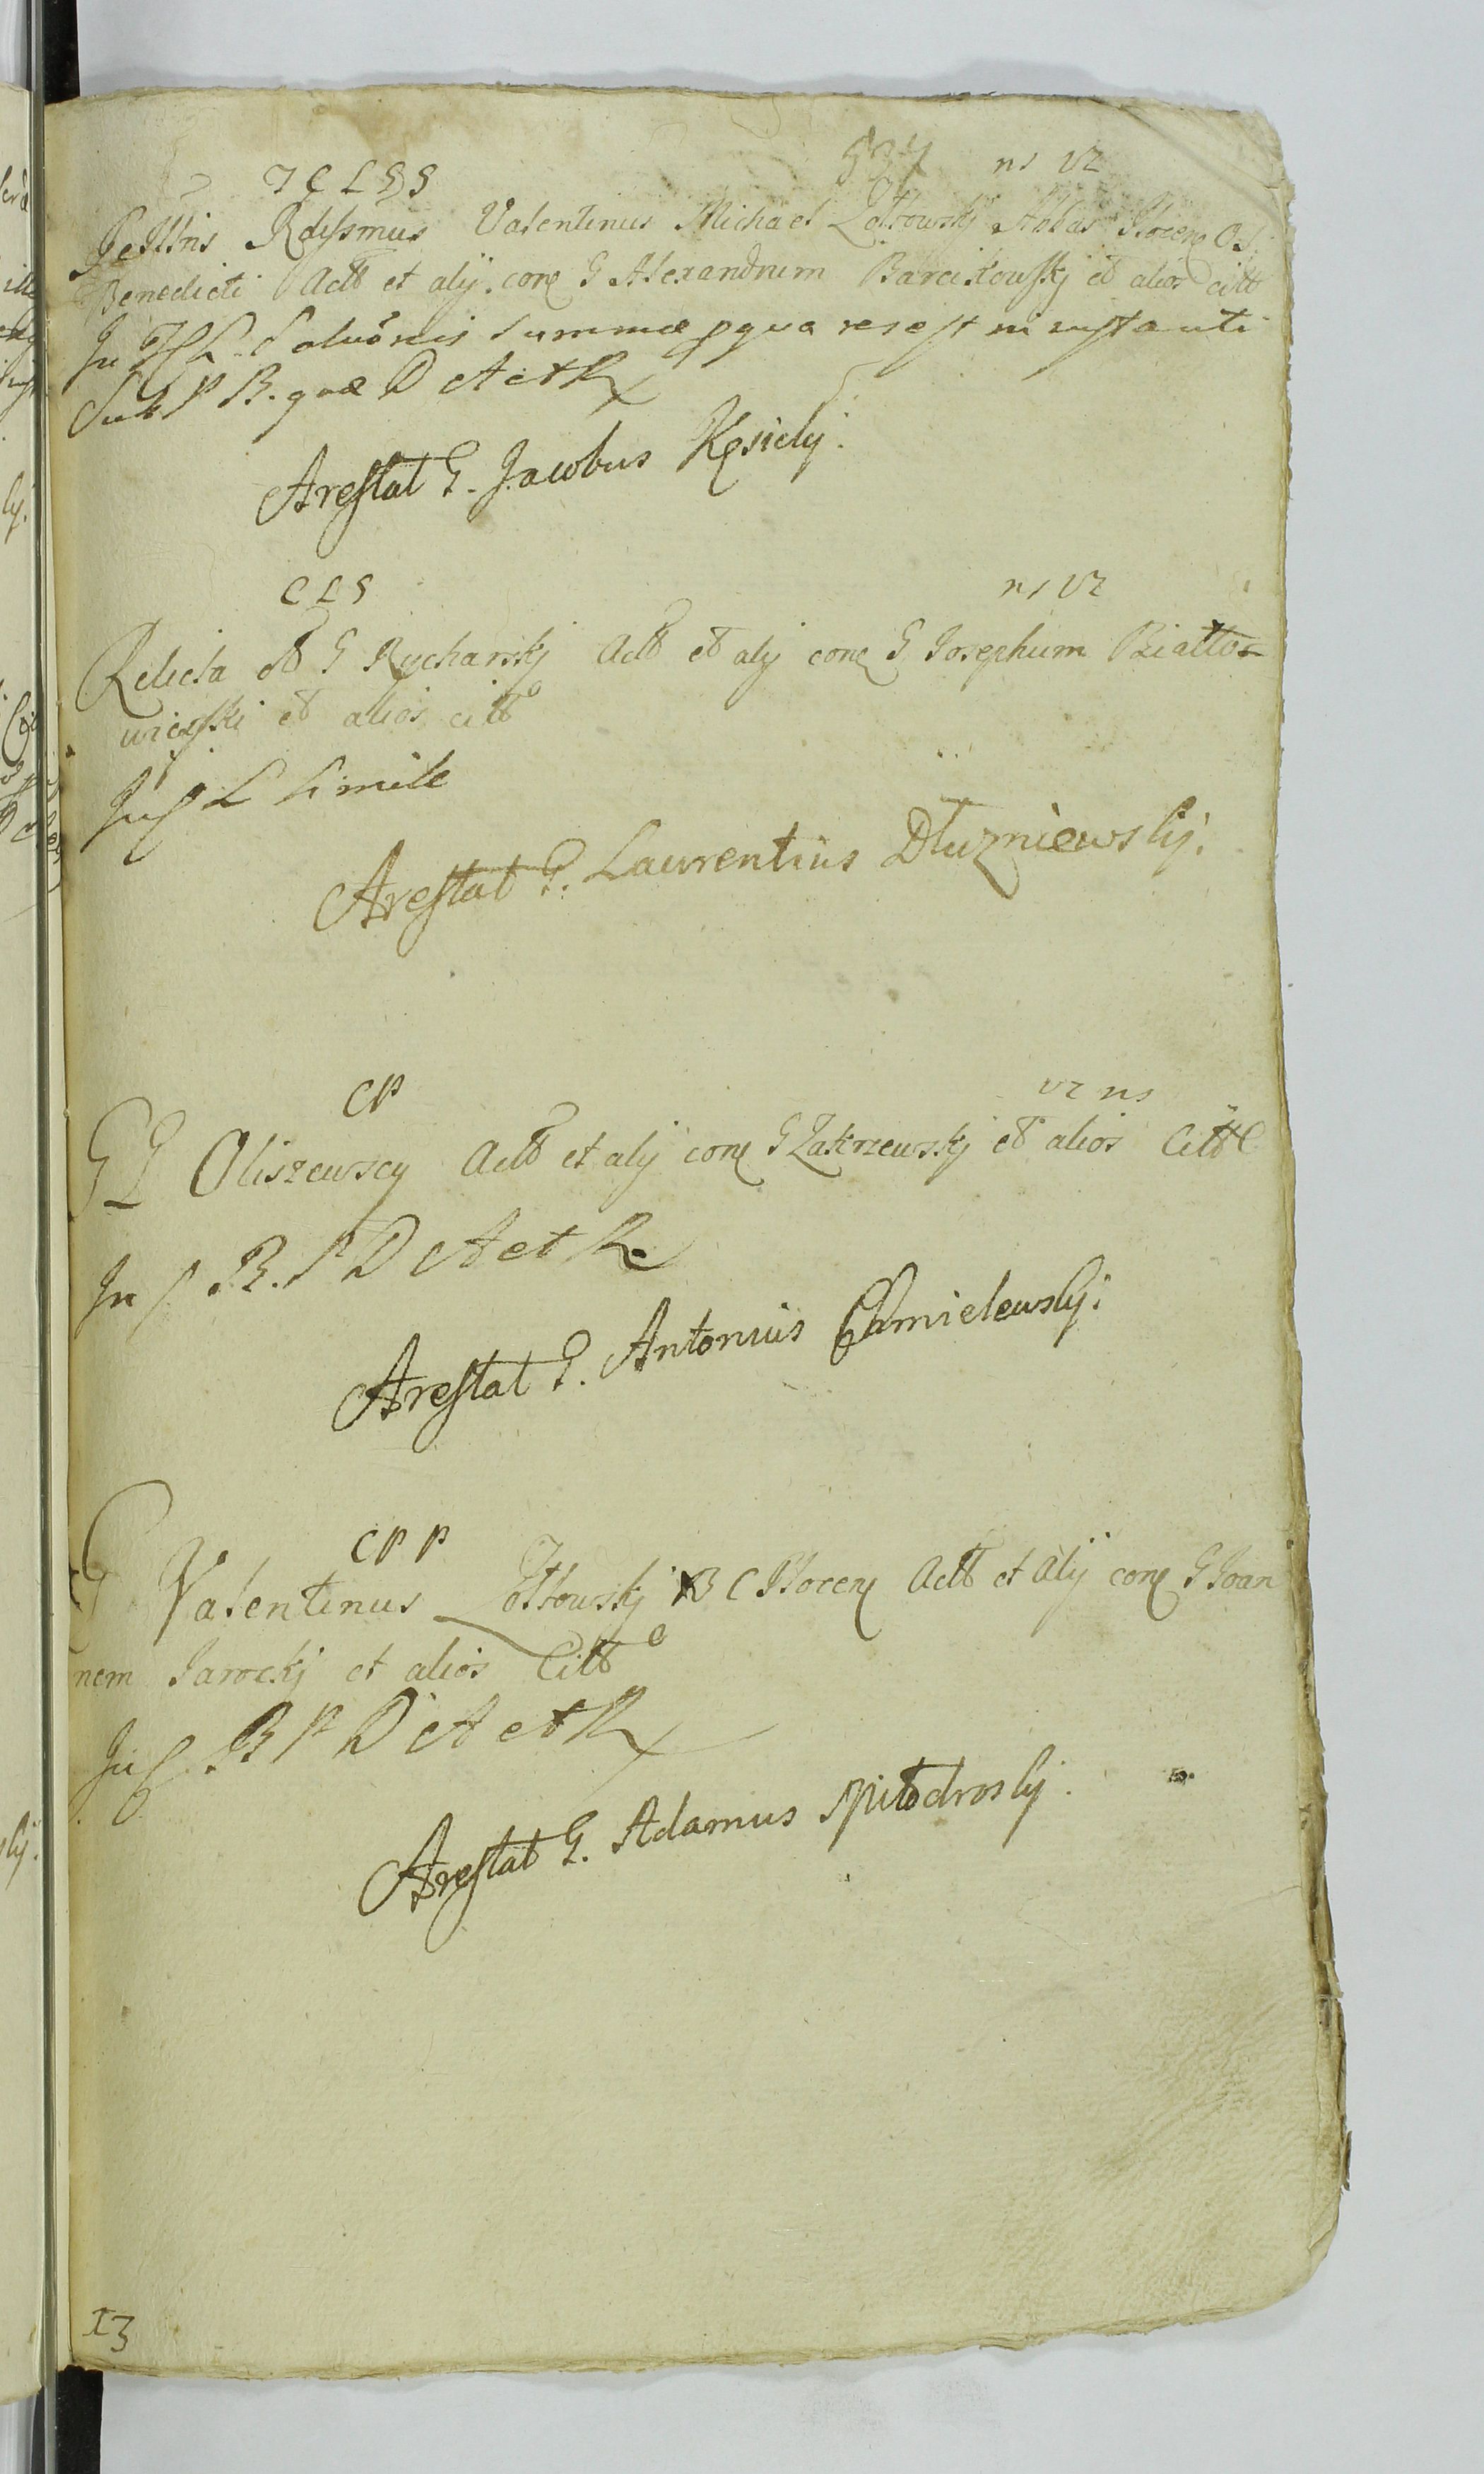 537 ns vz
J C L S S
Illris Rdissmus Valentinus Michael Zołtowskj Abbas Plocen Ord
Benedicti Actt et alij. con G Alexandrum Barcikowskj et alios citt
In Salvonis summæ p qua res est in instanti
Sub P B. quæ D A et R
Arestat G. Jacobus Kęsicky.
C L S ns vz
Relicta ol G Rycharskj Actt et alij con G Josephum Biatto=
wieyski et alios citto
In L simile
Arestat G. Laurentius Dłuzniewsky.
C P vz ns
GG Oliszewscy Actt et alij con G Zakrzewskj et alios Citt
In P B. P D A et R
Arestat G. Antonius Chmielewsky.
C P P
G Valentinus Zottowskj B C Plocen Actt et alij con G Joan
nem Jarockj et alios Citt
In B P D A et R
Arestat G. Adamus
13